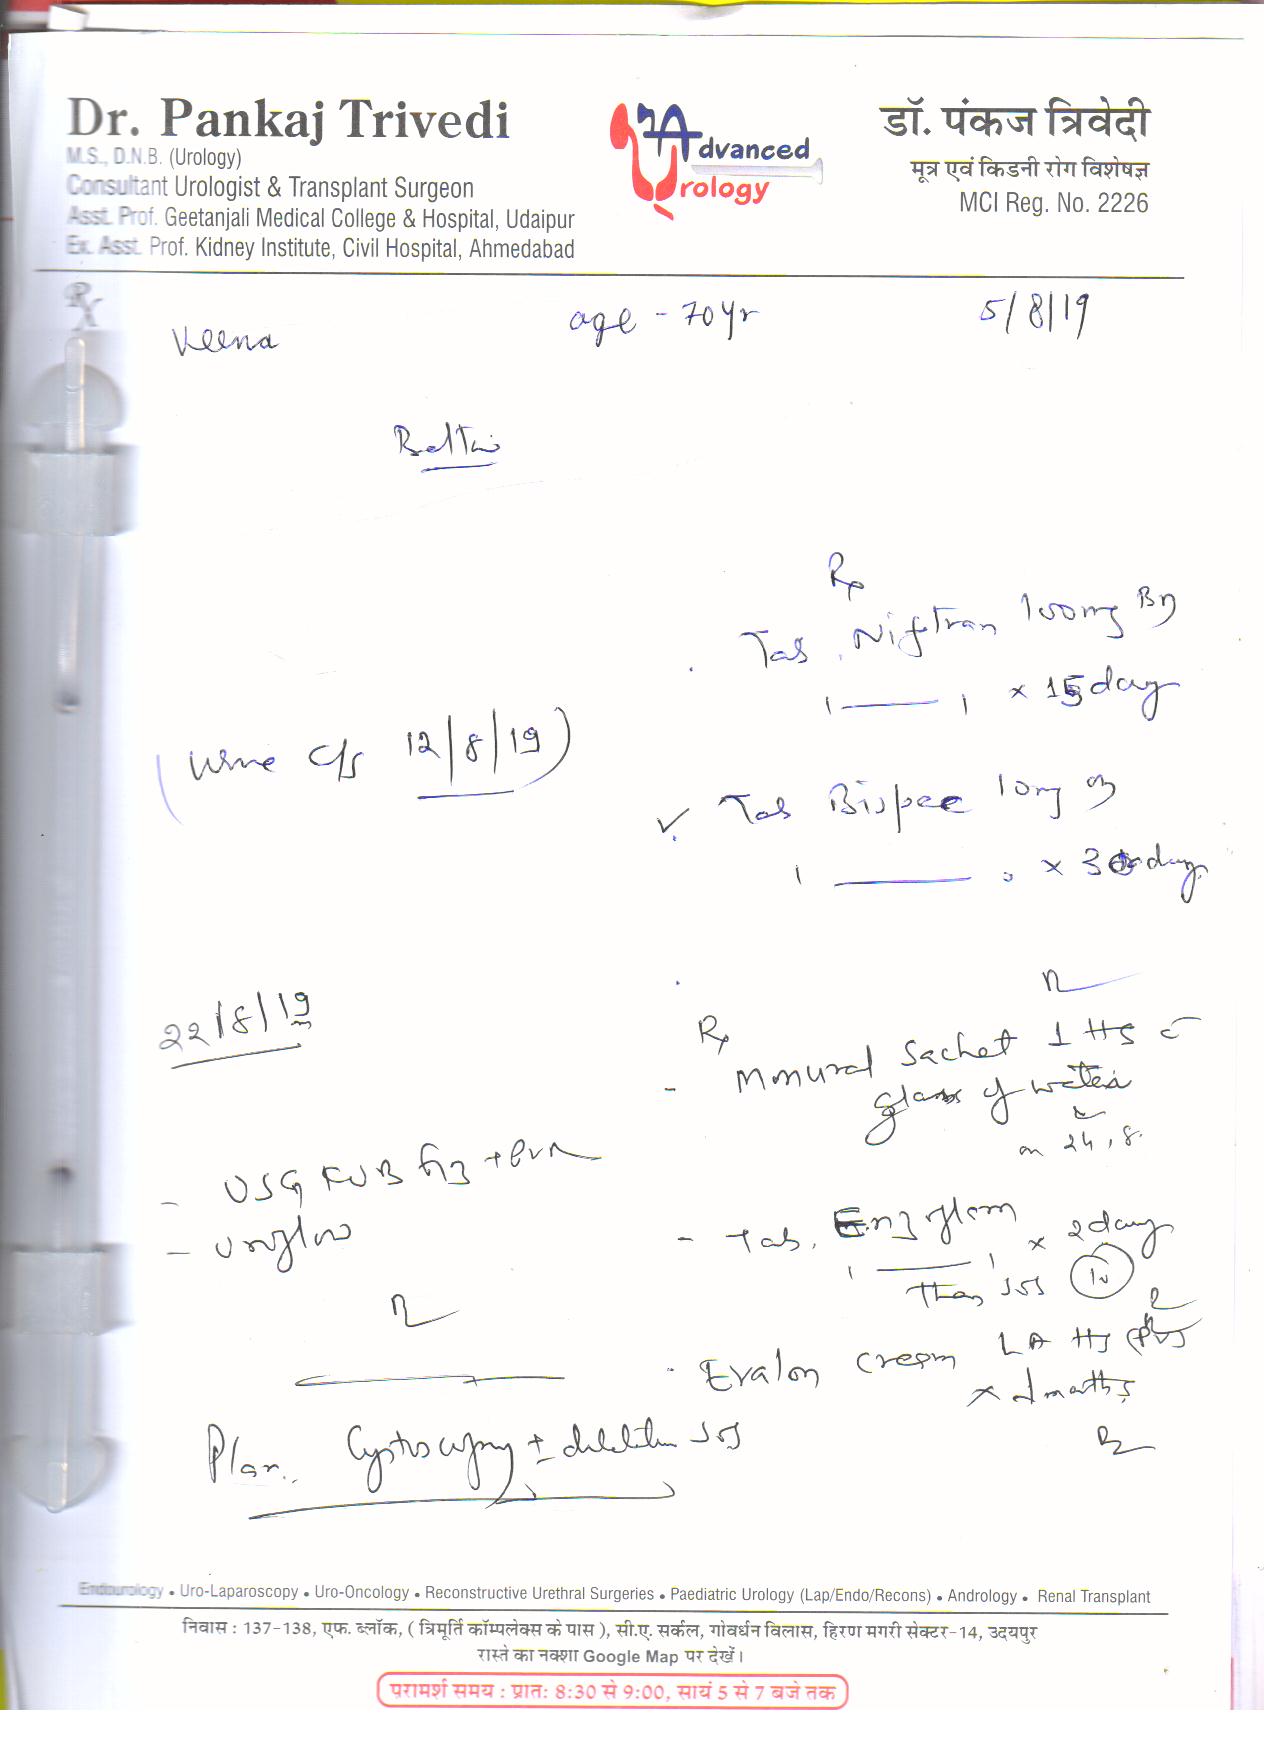 Dr. Pankaj Trivedi
M.S., D.N.B. (Urology)
Consultant Urologist & Transplant Surgeon
Asst. Prof. Geetanjali Medical College & Hospital, Udaipur
Ex. Asst. Prof. Kidney Institute, Civil Hospital, Ahmedabad
Advanced
Urology
डॉ. पंकज त्रिवेदी
मूत्र एवं किडनी रोग विशेषज्ञ
MCI Reg. No. 2226
Rx
Veena
age - 70 yr
5/8/19
Rp
Tab. Niftran 100mg BD
1 —— 1 × 15 day
(Urine C/s 12/8/19)
✓ Tab Bispec 10mg OD
1 —— × 30 day
22/8/19
Rp
- Monural Sachet 1 HS c̄
glass of water
on 24.8.
- USG KUB + PVR
- Uroflow
- Tab. Enzflam × 2 day
1 —— 1
then SOS
- Evalon cream LA HS (PV)
× months
Plan. Cystoscopy ± dilatation SOS
Endourology • Uro-Laparoscopy • Uro-Oncology • Reconstructive Urethral Surgeries • Paediatric Urology (Lap/Endo/Recons) • Andrology • Renal Transplant
निवास : 137-138, एफ. ब्लॉक, ( त्रिमूर्ति कॉम्पलेक्स के पास ), सी.ए. सर्कल, गोवर्धन विलास, हिरण मगरी सेक्टर-14, उदयपुर
रास्ते का नक्शा Google Map पर देखें।
परामर्श समय : प्रात: 8:30 से 9:00, सायं 5 से 7 बजे तक